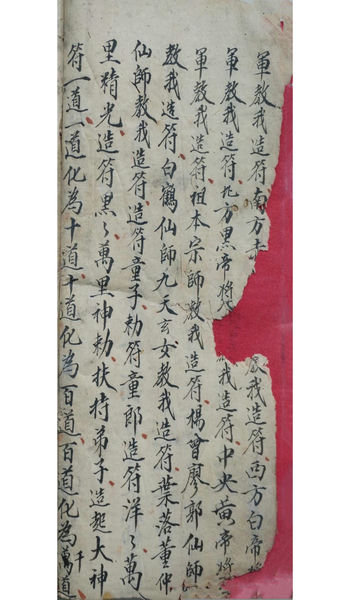 軍教我造符南方赤
教我造符西方白帝將
軍教我造符北方黑帝將
我造符中央黃帝將
軍教我造符祖本宗師教我造符楊曾廖郭仙師
教我造符白鶴仙師九天玄女教我造符葉落董仲
仙師教我造符造符童子勅符童郎造符洋〻萬
里精光造符黑〻萬里神勅扶持弟子造起大神
符一道一道化為十道十道化為百道百道化為千
萬道